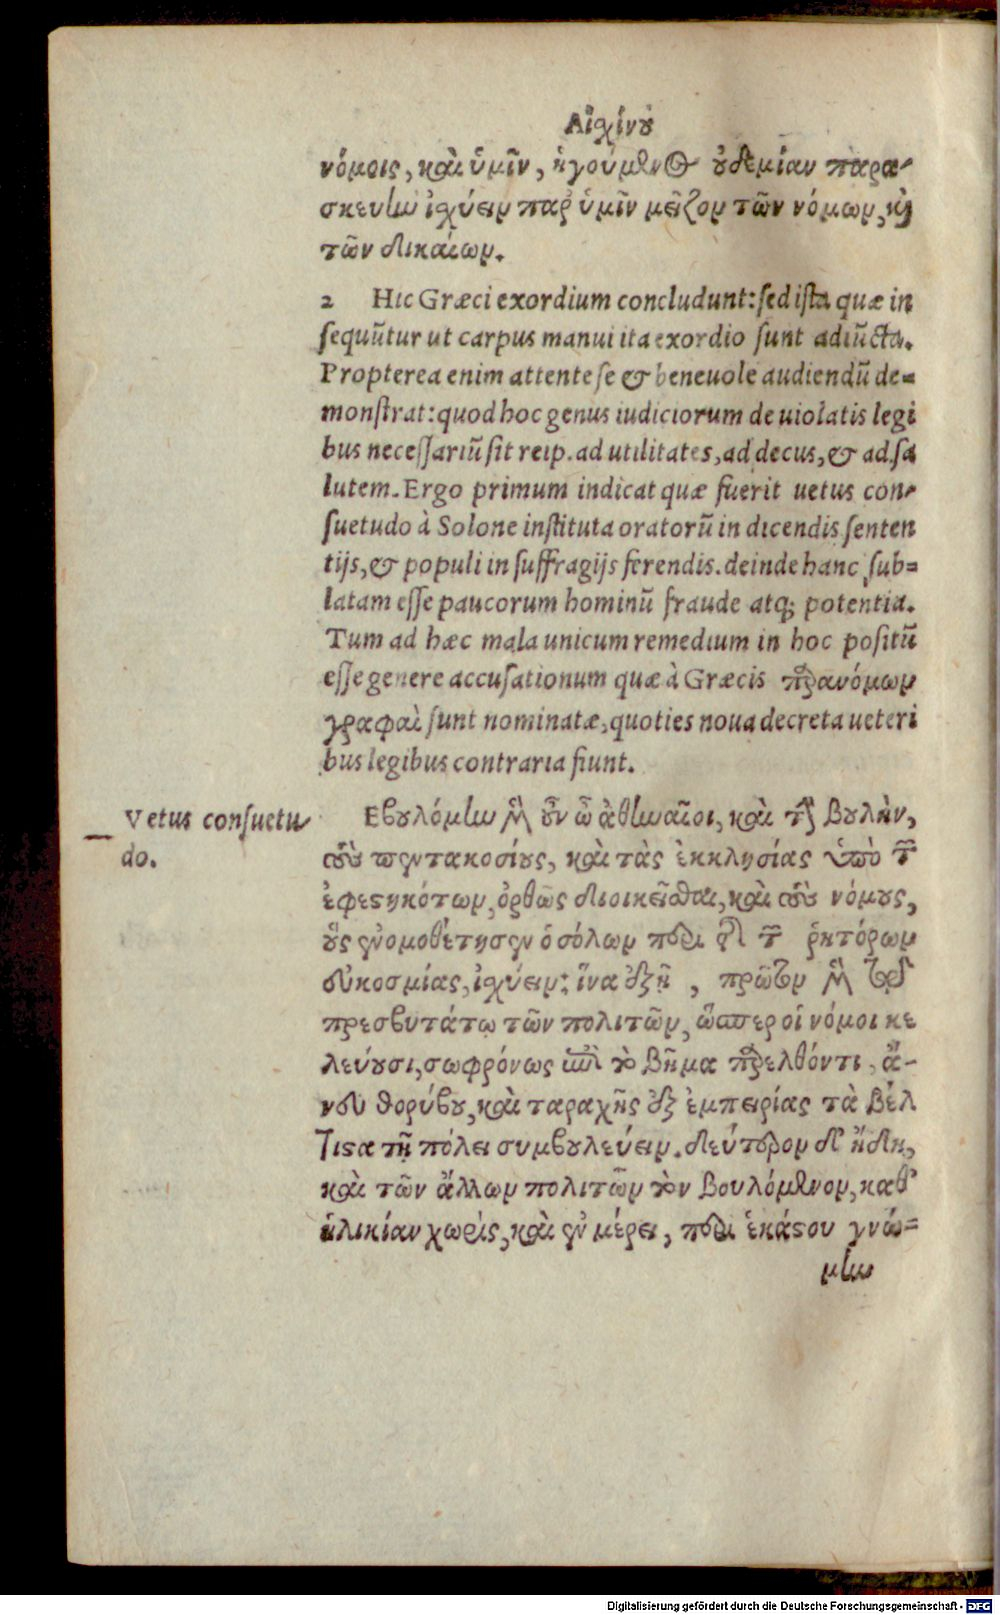 Αἰχίνου
νόμοις, καὶ ὑμῖν, ἡγούμενος οὐδεμίαν παρα-
σκευὴν ἰχύειν παρ' ὑμῖν μεῖζον τῶν νόμων, καὶ
τῶν δικαίων.
2 Hic Græci exordium concludunt: sed ista quæ in
sequũtur ut carpus manui ita exordio sunt adiũcta.
Propterea enim attente se & beneuole audiendũ de=
monstrat: quod hoc genus iudiciorum de uiolatis legi
bus necessariũ sit reip. ad utilitates, ad decus, & ad sa
lutem. Ergo primum indicat quæ fuerit uetus con-
suetudo à Solone instituta oratorũ in dicendis senten
tijs, & populi in suffragijs ferendis. deinde hanc sub=
latam esse paucorum hominũ fraude atq; potentia.
Tum ad hæc mala unicum remedium in hoc positũ
esse genere accusationum quæ à Græcis παρανόμων
γραφαὶ sunt nominatæ, quoties noua decreta ueteri
bus legibus contraria fiunt.
Vetus consuetu
do.
Εβουλόμην μὲν οὖν ὦ ἀθηναῖοι, καὶ τὴν βουλὴν,
τοὺς πεντακοσίους, καὶ τὰς ἐκκλησίας ὑπὸ τῶν
ἐφεστηκότων, ὀρθῶς διοικεῖσθαι, καὶ τοὺς νόμους,
οὓς ἐνομοθέτησεν ὁ σόλων περὶ τῆς τῶν ῥητόρων
εὐκοσμίας, ἰχύειν: ἵνα ἐξῆ, πρῶτον μὲν τῷ
πρεσβυτάτῳ τῶν πολιτῶν, ὥσπερ οἱ νόμοι κε
λεύουσι, σωφρόνως ἐπὶ τὸ βῆμα παρελθόντι, ἄ-
νευ θορύβου, καὶ ταραχῆς ἐξ ἐμπειρίας τὰ βέλ
τιστα τῇ πόλει συμβουλεύειν. δεύτερον δ' ἤδη,
καὶ τῶν ἄλλων πολιτῶν τὸν βουλόμενον, καθ'
ἡλικίαν χωρὶς, καὶ ἐν μέρει, περὶ ἑκάστου γνώ=
μην
Digitalisierung gefördert durch die Deutsche Forschungsgemeinschaft - DFG